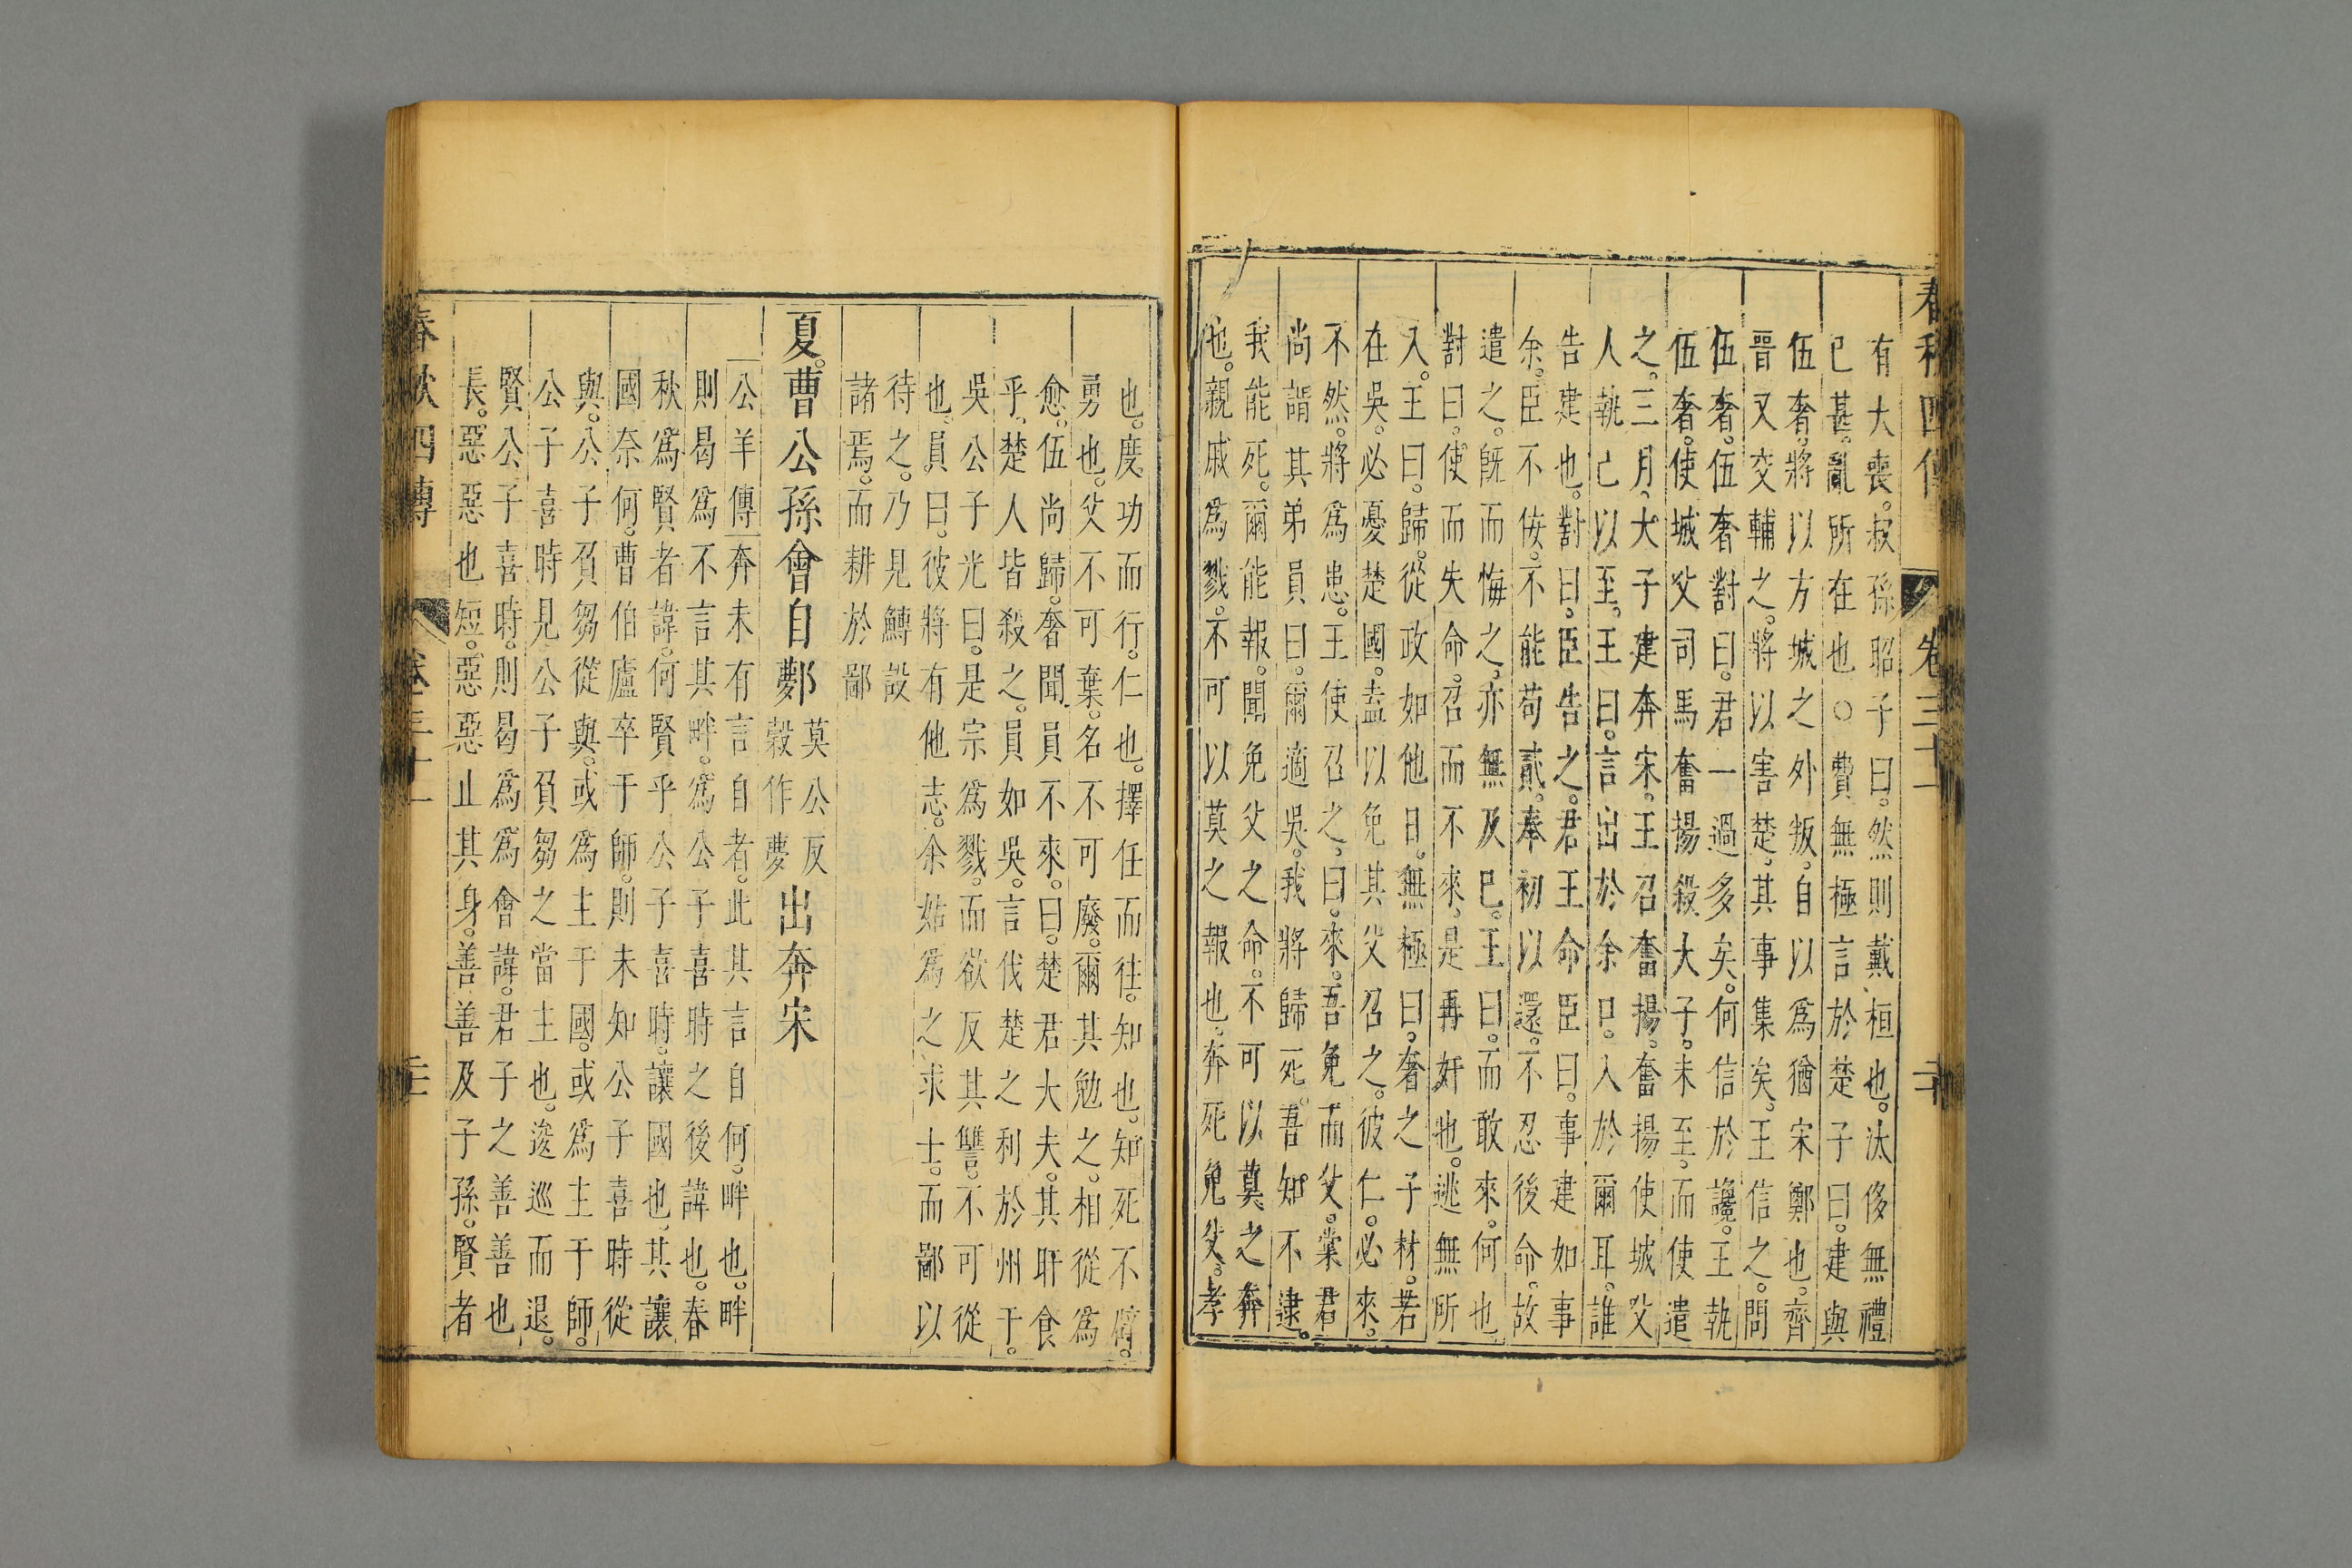 春秋四傳 卷三十一 二十
有大喪。叔孫昭子曰。然則戴桓也。汰侈無禮
已甚。亂所在也。○費無極言於楚子曰。建與
伍奢。將以方城之外叛。自以爲猶宋鄭也。齊
晉又交輔之。將以害楚。其事集矣。王信之。問
伍奢。伍奢對曰。君一過多矣。何信於讒。王執
伍奢。使城父司馬奮揚殺大子。未至。而使遣
之。三月。大子建奔宋。王召奮揚。奮揚使城父
人執己以至。王曰。言出於余口。入於爾耳。誰
告建也。對曰。臣告之。君王命臣曰。事建如事
余。臣不佞。不能苟貳。奉初以還。不忍後命。故
遣之。旣而悔之。亦無及已。王曰。而敢來。何也
對曰。使而失命。召而不來。是再奸也。逃無所
入。王曰。歸。從政如他日。無極曰。奢之子材。若
在吳。必憂楚國。盍以免其父召之。彼仁。必來。
不然。將爲患。王使召之。曰。來。吾免而父。棠君
尚謂其弟員曰。爾適吳。我將歸死。吾知不逮。
我能死。爾能報。聞免父之命。不可以莫之奔
也。親戚爲戮。不可以莫之報也。奔死免父。孝
也。度功而行。仁也。擇任而往。知也。知死不辟。
勇也。父不可棄。名不可廢。爾其勉之。相從爲
愈。伍尚歸。奢聞員不來。曰。楚君大夫。其旰食
乎。楚人皆殺之。員如吳。言伐楚之利於州于。
吳公子光曰。是宗爲戮。而欲反其讐。不可從
也。員曰。彼將有他志。余姑爲之求士。而鄙以
待之。乃見鱄設
諸焉。而耕於鄙
夏。曹公孫會自鄸莫公反穀作夢出奔宋
公羊傳奔未有言自者。此其言自何。畔也。畔
則曷爲不言其畔。爲公子喜時之後諱也。春
秋爲賢者諱。何賢乎公子喜時。讓國也。其讓
國奈何。曹伯廬卒于師。則未知公子喜時從
與。公子負芻從與。或爲主于國。或爲主于師。
公子喜時見公子負芻之當主也。逡巡而退。
賢公子喜時。則曷爲爲會諱。君子之善善也
長。惡惡也短。惡惡止其身。善善及子孫。賢者
春秋四傳 卷三十一 二十一